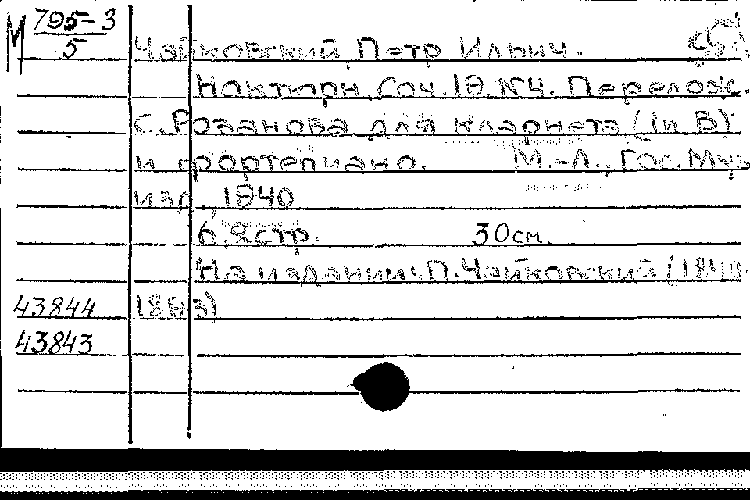 М 795-3
5
Чайковский Петр Ильич.
Ноктюрн, Соч. 19. №4. Перелож.
С. Розанова для кларнета (in B)
и фортепиано. М.-Л., Гос. Муз.
изд., 1940
6, 2 стр. 30 см.
На издании: П. Чайковский (1840-
43844 1893)
43843